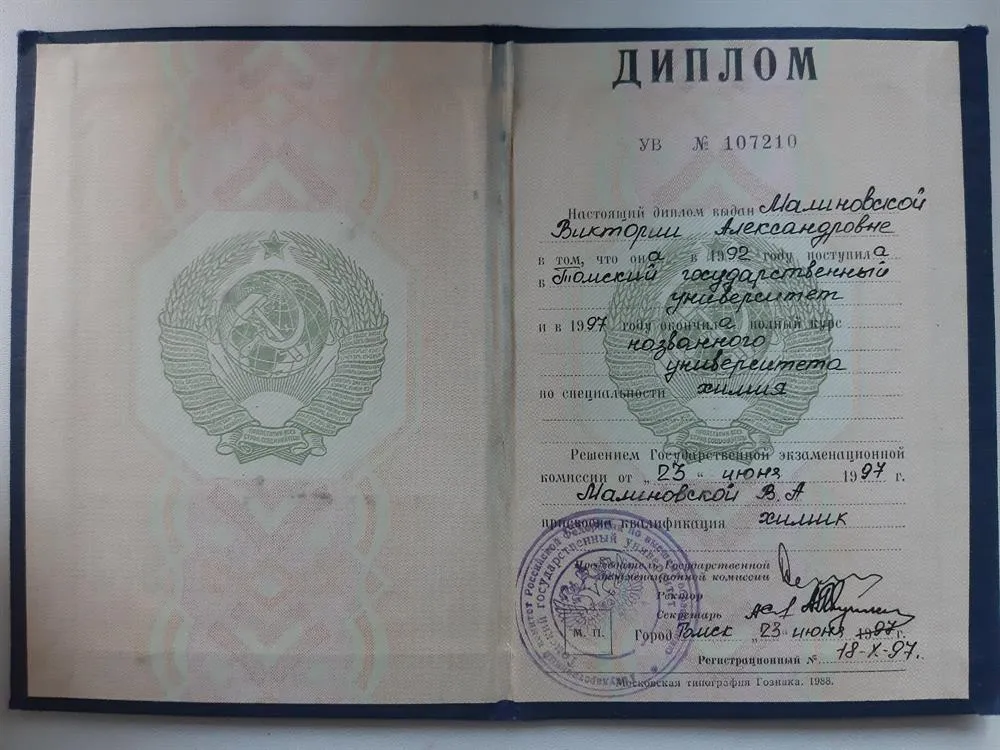 ДИПЛОМ
УВ № 107210
Настоящий диплом выдан Малиновской
Виктории Александровне
в том, что она в 1992 году поступила
в Томский государственный
университет
и в 1997 году окончила полный курс
названного
университета
по специальности химия
Решением Государственной экзаменационной
комиссии от „23“ июня 1997 г.
Малиновской В.А
присвоена квалификация химик
Председатель Государственной
экзаменационной комиссии
Ректор
Секретарь
М. П.
Город Томск „23“ июня 1997 г.
Регистрационный № 18-X-97.
Московская типография Гознака. 1988.